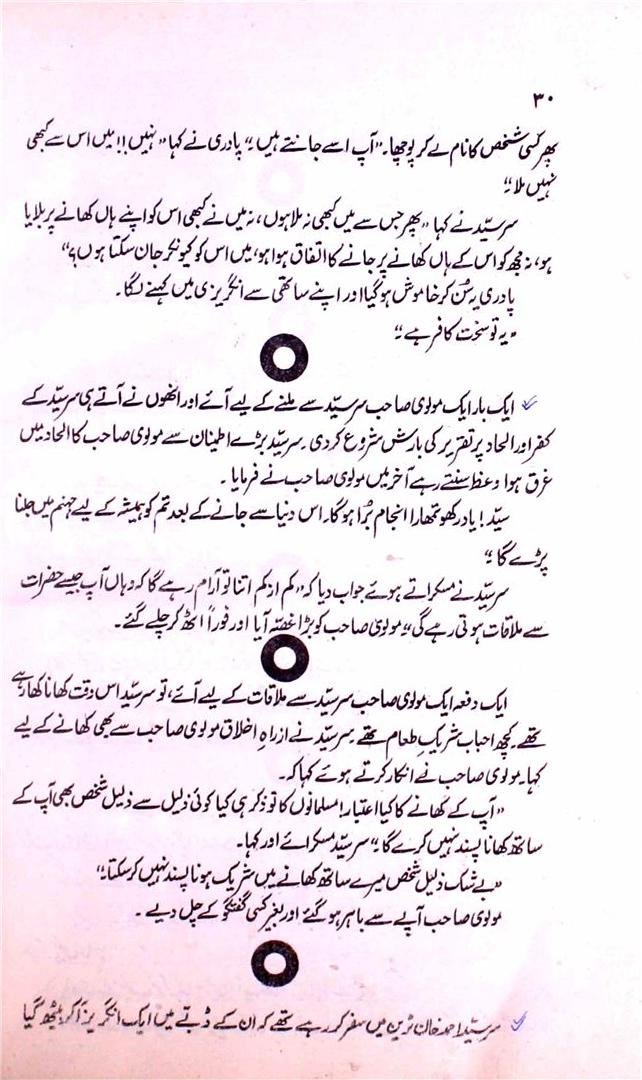 ۳۰
پھر کسی شخص کا نام لے کر پوچھا۔ "آپ اسے جانتے ہیں۔" پادری نے کہا "نہیں!! میں اس سے کبھی
نہیں ملا۔"
سرسیّد نے کہا "پھر جس سے میں کبھی نہ ملا ہوں، نہ میں نے کبھی اس کو اپنے ہاں کھانے پر بلایا
ہو، نہ مجھ کو اس کے ہاں کھانے پر جانے کا اتفاق ہوا ہو، میں اس کو کیونکر جان سکتا ہوں؟"
پادری یہ سُن کر خاموش ہو گیا اور اپنے ساتھی سے انگریزی میں کہنے لگا۔
"یہ تو سخت کافر ہے۔"
ایک بار ایک مولوی صاحب سرسیّد سے ملنے کے لیے آئے اور انھوں نے آتے ہی سرسیّد کے
کفر اور الحاد پر تقریر کی بارش شروع کر دی۔ سرسیّد بڑے اطمینان سے مولوی صاحب کا الحاد میں
غرق ہوا وعظ سنتے رہے آخر میں مولوی صاحب نے فرمایا۔
سیّد! یاد رکھو تمھارا انجام بُرا ہوگا۔ اس دنیا سے جانے کے بعد تم کو ہمیشہ کے لیے جہنم میں جلنا
پڑے گا۔"
سرسیّد نے مسکراتے ہوئے جواب دیا کہ "کم از کم اتنا تو آرام رہے گا کہ وہاں آپ جیسے حضرات
سے ملاقات ہوتی رہے گی۔" مولوی صاحب کو بڑا غصّہ آیا اور فوراً اٹھ کر چلے گئے۔
ایک دفعہ ایک مولوی صاحب سرسیّد سے ملاقات کے لیے آئے، تو سرسیّد اس وقت کھانا کھا رہے
تھے۔ کچھ احباب شریکِ طعام تھے۔ سرسیّد نے ازراہِ اخلاق مولوی صاحب سے بھی کھانے کے لیے
کہا۔ مولوی صاحب نے انکار کرتے ہوئے کہا کہ۔
"آپ کے کھانے کا کیا اعتبار! مسلمانوں کا تو ذکر ہی کیا کوئی ذلیل سے ذلیل شخص بھی آپ کے
ساتھ کھانا پسند نہیں کرے گا۔" سرسیّد مسکرائے اور کہا۔
"بے شک ذلیل شخص میرے ساتھ کھانے میں شریک ہونا پسند نہیں کر سکتا۔"
مولوی صاحب آپے سے باہر ہو گئے اور بغیر کسی گفتگو کے چل دیے۔
سرسیّد احمد خاں ٹرین میں سفر کر رہے تھے کہ ان کے ڈبّے میں ایک انگریز آ کر بیٹھ گیا